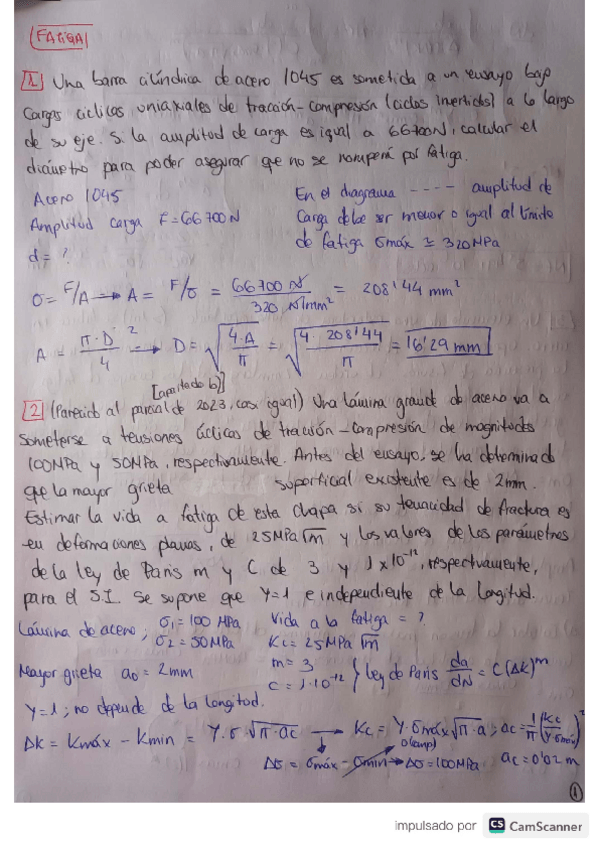 FATIGA
1 Una barra cilíndrica de acero 1045 es sometida a un ensayo bajo
cargas cíclicas uniaxiales de tracción-compresión (ciclos invertidos) a lo largo
de su eje. Si la amplitud de carga es igual a 66700N, calcular el
diámetro para poder asegurar que no se romperá por fatiga.
Acero 1045
Amplitud carga F=66700N
d= ?
En el diagrama ---- amplitud de
carga debe ser menor o igual al límite
de fatiga σmáx ≅ 320MPa
σ= F/A → A = F/σ = 66700 N / 320 N/mm² = 208'44 mm²
A = π·D² / 4 → D = √(4·A / π) = √(4·208'44 / π) = 16'29 mm
[apartado b)]
2 (Parecido al parcial de 2023, casi igual) Una lámina grande de acero va a
someterse a tensiones cíclicas de tracción-compresión de magnitudes
100MPa y 50MPa, respectivamente. Antes del ensayo, se ha determinado
que la mayor grieta superficial existente es de 2mm.
Estimar la vida a fatiga de esta chapa si su tenacidad de fractura es
en deformaciones planas, de 25MPa√m y los valores de los parámetros
de la ley de Paris m y C de 3 y 1x10⁻¹², respectivamente,
para el SI. Se supone que Y=1 e independiente de la longitud.
Lámina de acero; σ1=100 MPa
σ2=50MPa
Mayor grieta a0=2mm
Y=1; no depende de la longitud.
Vida a la fatiga = ?
Kc=25MPa√m
m=3
C=1·10⁻¹² } Ley de Paris da/dN = C(ΔK)^m
ΔK = Kmáx - Kmin = Y·σ√π·ac → Kc = Y·σmáx√π·a; ac = 1/π (Kc / Y·σmáx)²
Δσ = σmáx - σmin → Δσ=100MPa
ac=0'02 m
1
impulsado por CS CamScanner